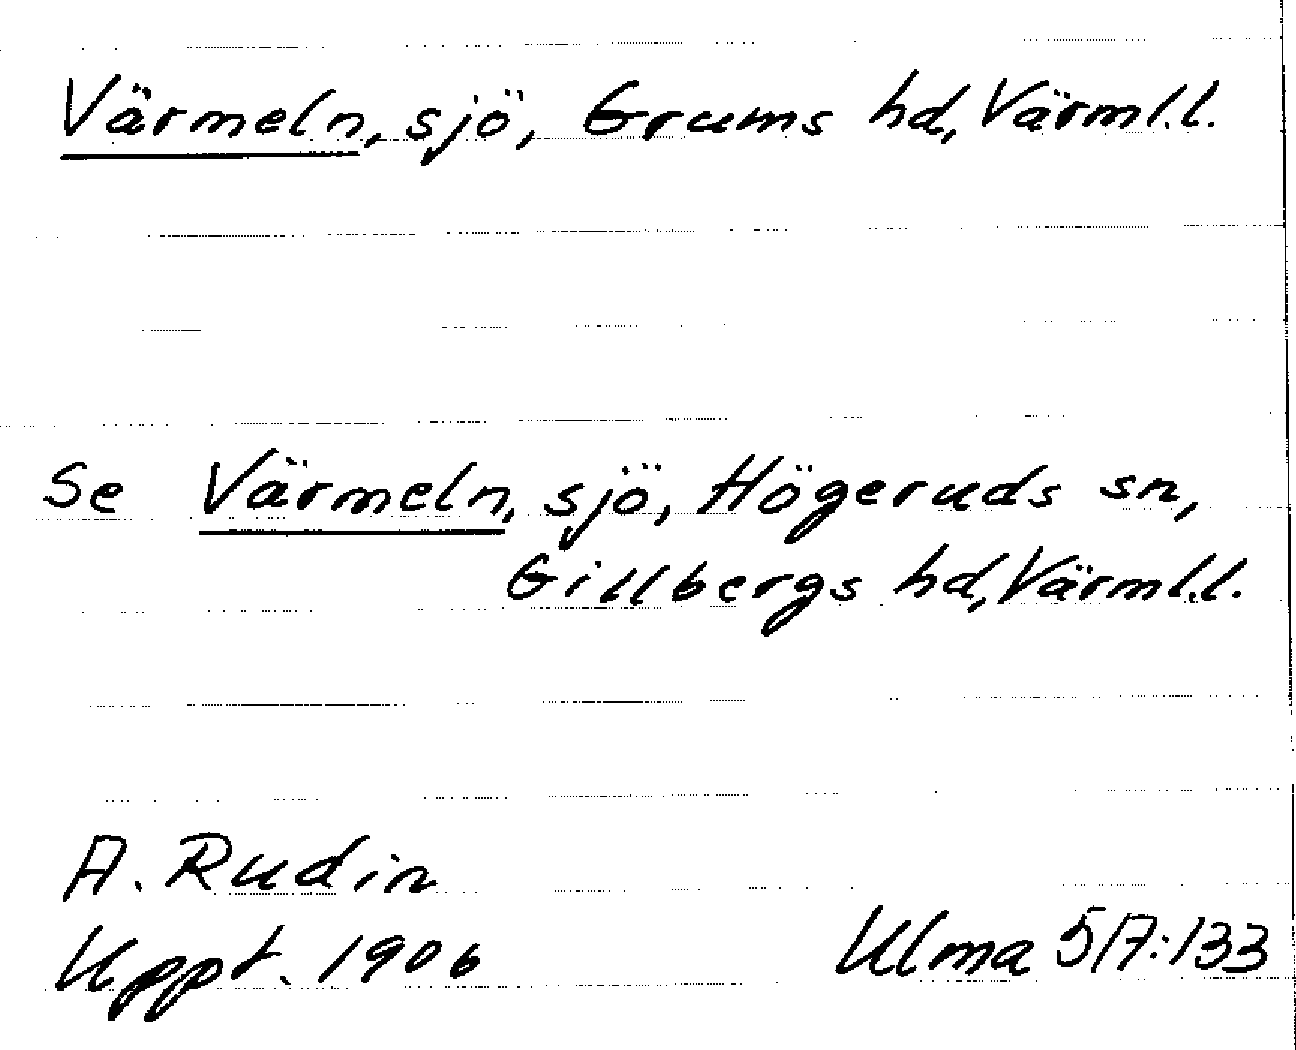 Värmeln, sjö, Grums hd, Värml.l.
Se Värmeln, sjö, Högeruds sn,
Gillbergs hd, Värml.l.
A. Rudin
Uppt. 1906
Ulma 517:133